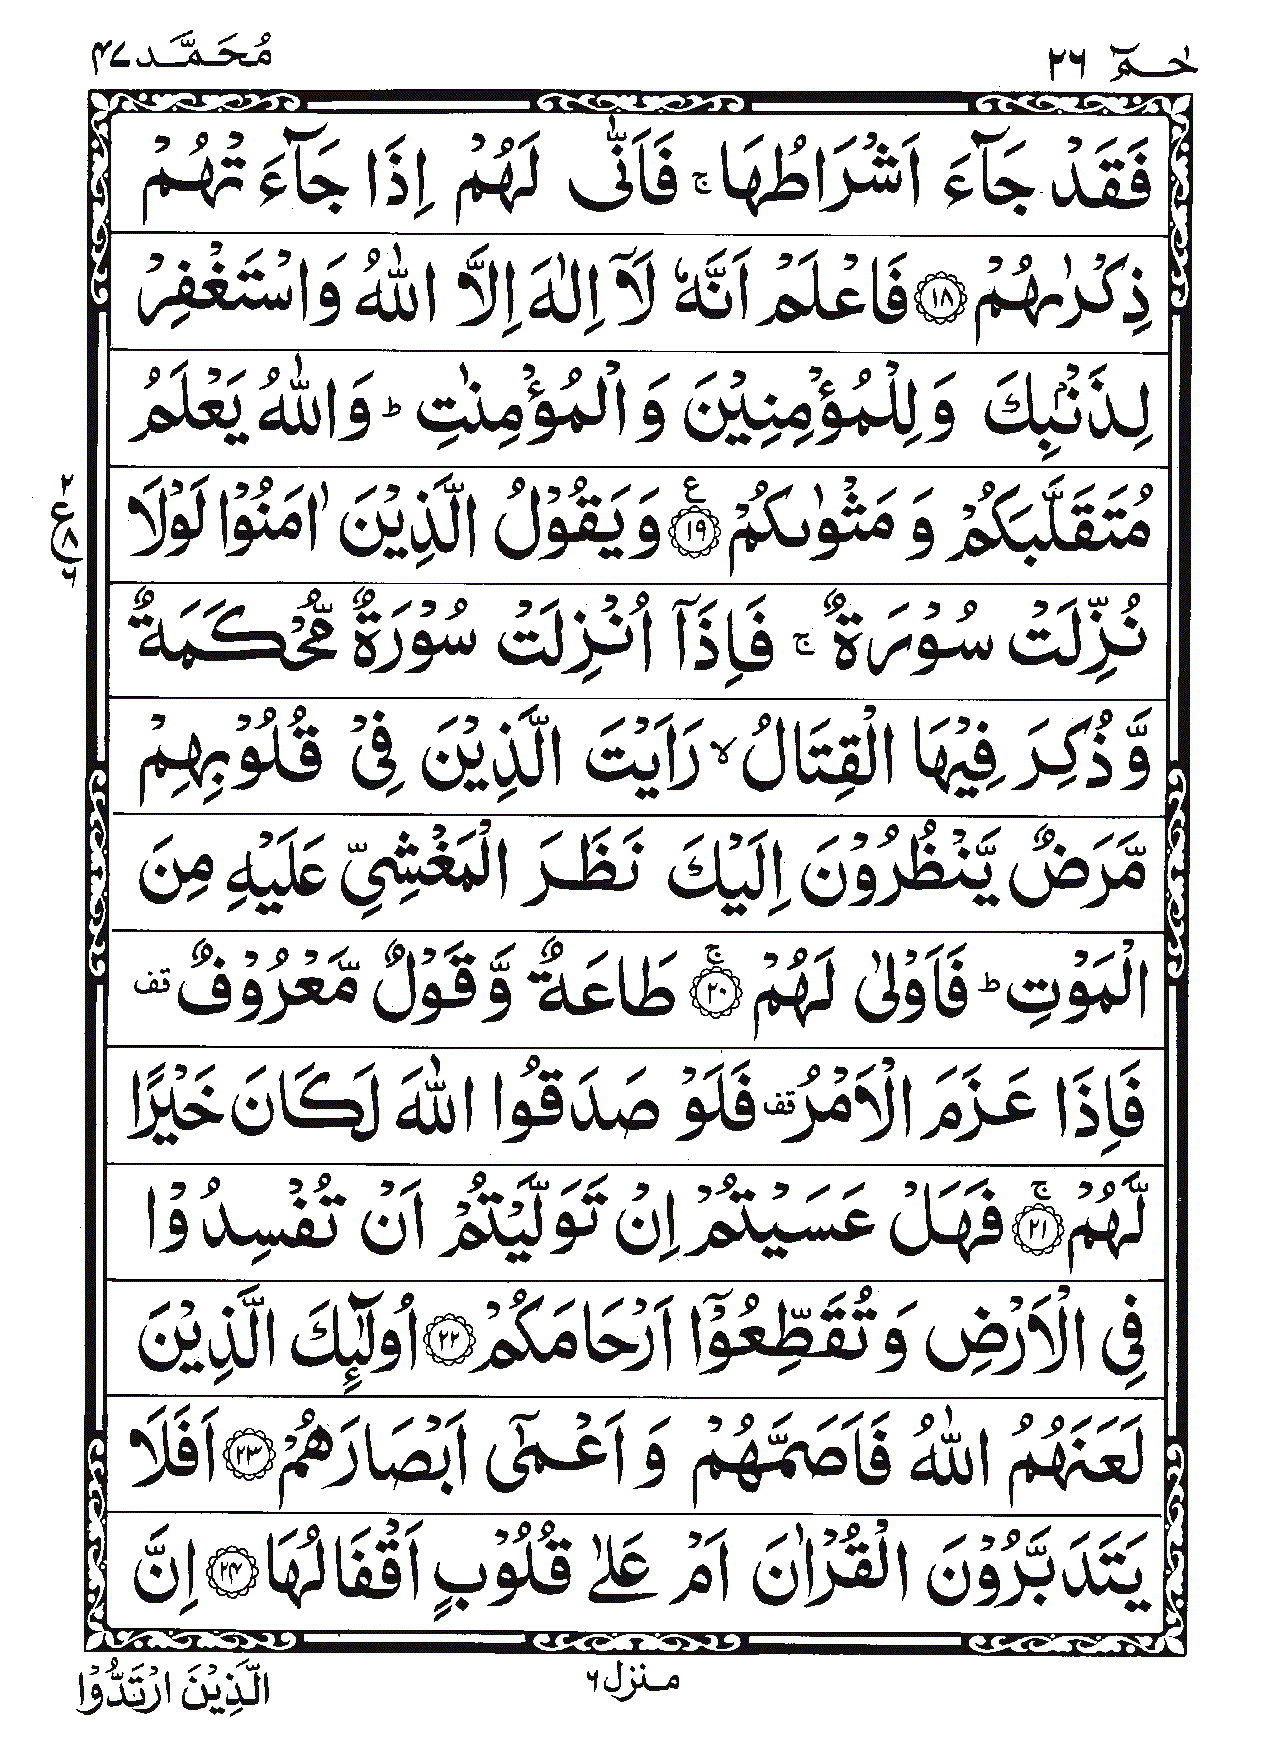 حٰمٓ ٢٦
مُحَمَّد ٤٧
فَقَدْ جَآءَ اَشْرَاطُهَا ۚ فَاَنّٰى لَهُمْ اِذَا جَآءَتْهُمْ
ذِكْرٰىهُمْ ﴿۱۸﴾ فَاعْلَمْ اَنَّهٗ لَآ اِلٰهَ اِلَّا اللّٰهُ وَاسْتَغْفِرْ
لِذَنْۢبِكَ وَلِلْمُؤْمِنِيْنَ وَالْمُؤْمِنٰتِ ؕ وَاللّٰهُ يَعْلَمُ
مُتَقَلَّبَكُمْ وَمَثْوٰىكُمْ ﴿۱۹﴾ ع وَيَقُوْلُ الَّذِيْنَ اٰمَنُوْا لَوْلَا
٢ ع ٨ ٦
نُزِّلَتْ سُوْرَةٌ ۚ فَاِذَآ اُنْزِلَتْ سُوْرَةٌ مُّحْكَمَةٌ
وَّذُكِرَ فِيْهَا الْقِتَالُ ۙ رَاَيْتَ الَّذِيْنَ فِيْ قُلُوْبِهِمْ
مَّرَضٌ يَّنْظُرُوْنَ اِلَيْكَ نَظَرَ الْمَغْشِيِّ عَلَيْهِ مِنَ
الْمَوْتِ ؕ فَاَوْلٰى لَهُمْ ﴿۲۰﴾ ۚ طَاعَةٌ وَّقَوْلٌ مَّعْرُوْفٌ قف
فَاِذَا عَزَمَ الْاَمْرُ قف فَلَوْ صَدَقُوا اللّٰهَ لَكَانَ خَيْرًا
لَّهُمْ ﴿۲۱﴾ ۚ فَهَلْ عَسَيْتُمْ اِنْ تَوَلَّيْتُمْ اَنْ تُفْسِدُوْا
فِي الْاَرْضِ وَتُقَطِّعُوْٓا اَرْحَامَكُمْ ﴿۲۲﴾ اُولٰٓئِكَ الَّذِيْنَ
لَعَنَهُمُ اللّٰهُ فَاَصَمَّهُمْ وَاَعْمٰٓى اَبْصَارَهُمْ ﴿۲۳﴾ اَفَلَا
يَتَدَبَّرُوْنَ الْقُرْاٰنَ اَمْ عَلٰى قُلُوْبٍ اَقْفَالُهَا ﴿۲۴﴾ اِنَّ
منزل ٦
الَّذِيْنَ ارْتَدُّوْا